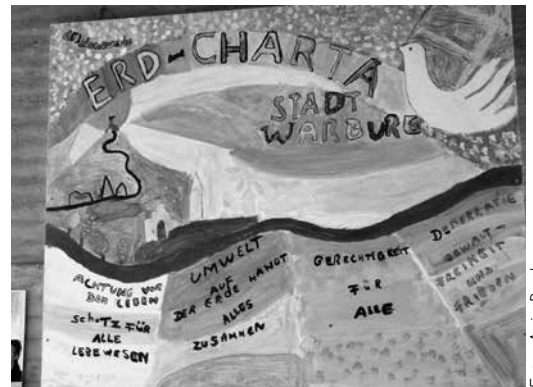 ERD-CHARTA
STADT
WARBURG
ACHTUNG VOR
DEM LEBEN
SCHUTZ FÜR
ALLE
LEBEWESEN
UMWELT
AUF
DER ERDE HÄNGT
ALLES
ZUSAMMEN
GERECHTIGKEIT
FÜR
ALLE
DEMOKRATIE
GEWALT-
FREIHEIT
UND
FRIEDEN